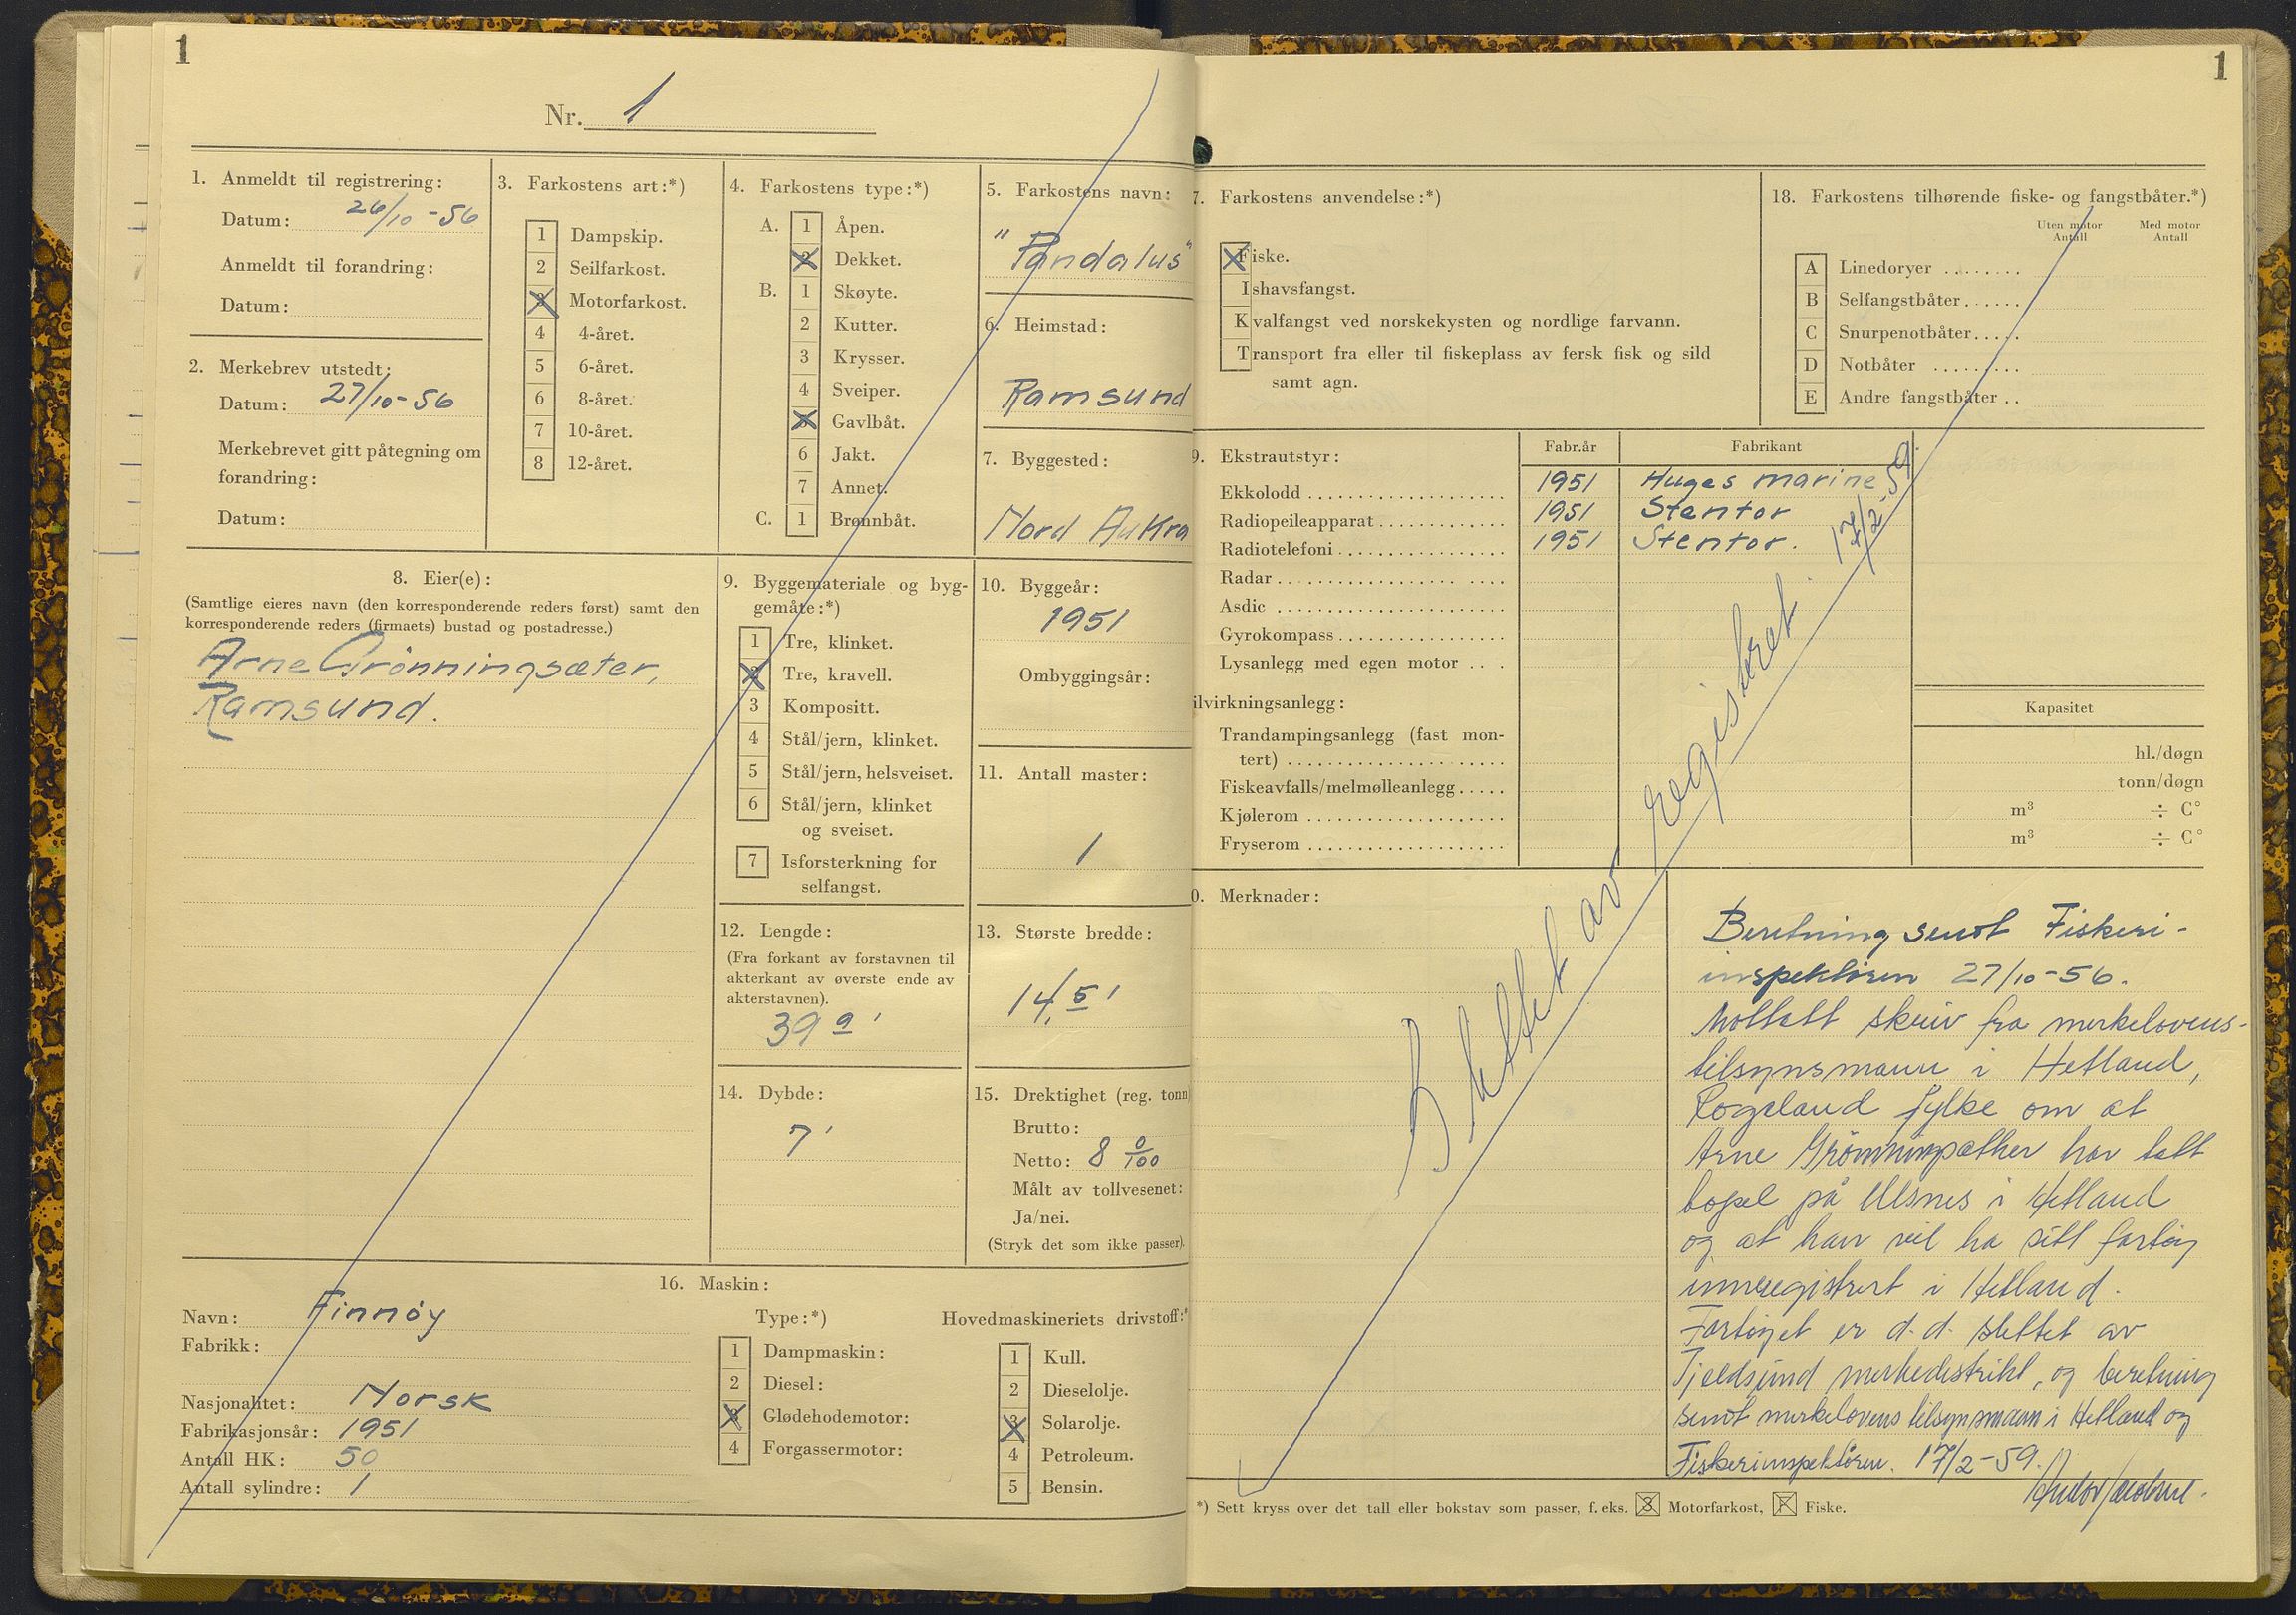 1
Nr. 1
1. Anmeldt til registrering:
Datum: 26/10-56
Anmeldt til forandring:
Datum:
2. Merkebrev utstedt:
Datum: 27/10-56
Merkebrevet gitt påtegning om
forandring:
Datum:
3. Farkostens art:*)
1 Dampskip.
2 Seilfarkost.
3 Motorfarkost.
4 4-året.
5 6-året.
6 8-året.
7 10-året.
8 12-året.
4. Farkostens type:*)
A. 1 Åpen.
2 Dekket.
B. 1 Skøyte.
2 Kutter.
3 Krysser.
4 Sveiper.
5 Gavlbåt.
6 Jakt.
7 Annet.
C. 1 Brønnbåt.
5. Farkostens navn:
"Pandalus"
6. Heimstad:
Ramsund
7. Byggested:
Nord Aukra
8. Eier(e):
(Samtlige eieres navn (den korresponderende reders først) samt den
korresponderende reders (firmaets) bustad og postadresse.)
Arne Grönningsæter,
Ramsund.
9. Byggemateriale og byg-
gemåte:*)
1 Tre, klinket.
2 Tre, kravell.
3 Kompositt.
4 Stål/jern, klinket.
5 Stål/jern, helsveiset.
6 Stål/jern, klinket
og sveiset.
7 Isforsterkning for
selfangst.
10. Byggeår:
1951
Ombyggingsår:
11. Antall master:
1
12. Lengde:
(Fra forkant av forstavnen til
akterkant av øverste ende av
akterstavnen).
39 9 '
13. Største bredde:
14,5'
14. Dybde:
7'
15. Drektighet (reg. tonn
Brutto:
Netto: 8 0/100
Målt av tollvesenet:
Ja/nei.
(Stryk det som ikke passer).
16. Maskin:
Navn: Finnöy
Fabrikk:
Nasjonalitet: Norsk
Fabrikasjonsår: 1951
Antall HK: 50
Antall sylindre: 1
Type:*)
1 Dampmaskin:
2 Diesel:
3 Glødehodemotor:
4 Forgassermotor:
Hovedmaskineriets drivstoff:*
1 Kull.
2 Dieselolje.
3 Solarolje.
4 Petroleum.
5 Bensin.
1
7. Farkostens anvendelse:*)
Fiske.
Ishavsfangst.
Kvalfangst ved norskekysten og nordlige farvann.
Transport fra eller til fiskeplass av fersk fisk og sild
samt agn.
18. Farkostens tilhørende fiske- og fangstbåter.*)
Uten motor Antall
Med motor Antall
A Linedoryer
B Selfangstbåter
C Snurpenotbåter
D Notbåter
E Andre fangstbåter
9. Ekstrautstyr:
Fabr.år Fabrikant
Ekkolodd 1951 Huges marine
Radiopeileapparat 1951 Stentor
Radiotelefoni 1951 Stentor.
Radar
Asdic
Gyrokompass
Lysanlegg med egen motor
ilvirkningsanlegg:
Kapasitet
Trandampingsanlegg (fast mon-
tert) hl./døgn
Fiskeavfalls/melmølleanlegg tonn/døgn
Kjølerom m³ ÷ C°
Fryserom m³ ÷ C°
Slettet av registeret. 17/2-59.
0. Merknader:
Beretning sendt Fiskeri-
inspektören 27/10-56.
Mottatt skriv fra merkelovens-
tilsynsmann i Hetland,
Rogaland fylke om at
Arne Grönningsæther har tatt
bopel på Ulsnes i Hetland
og at han vil ha sitt fartöy
innregistrert i Hetland.
Fartöyet er d.d. slettet av
Tjeldsund merkedistrikt, og beretning
sendt merkelovens tilsynsmann i Hetland og
Fiskeriinspektören. 17/2-59.
*) Sett kryss over det tall eller bokstav som passer, f. eks. 3 Motorfarkost, F Fiske.